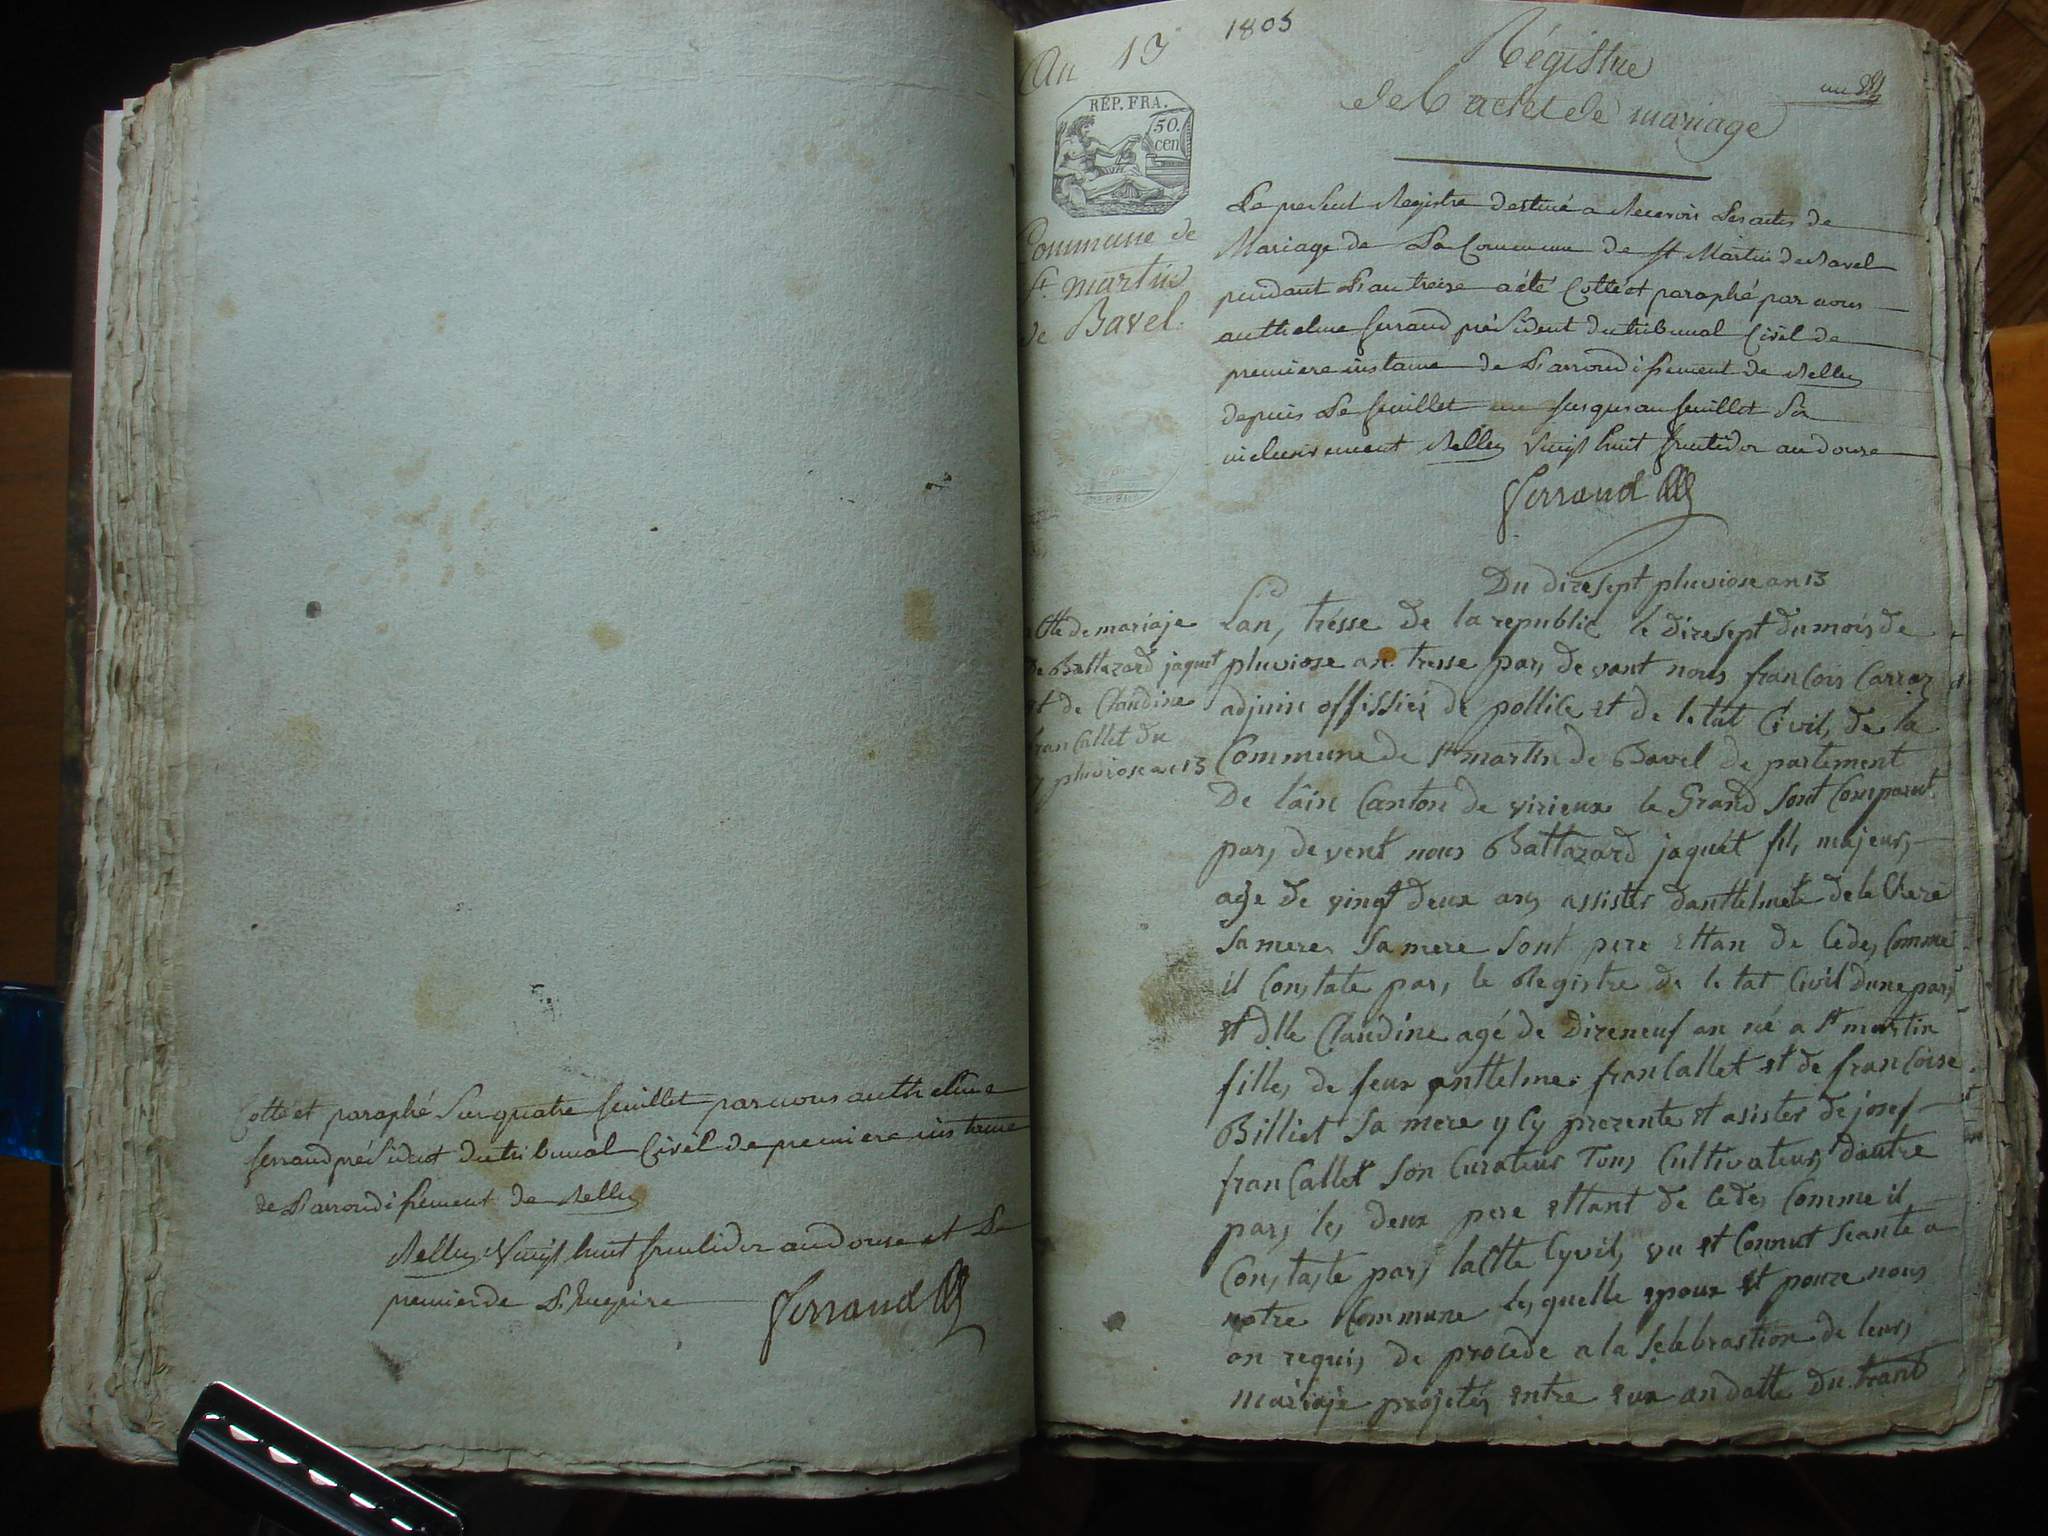 Cotté et paraphé Sur quatre feuillet par nous anthelme
ferrand président du tribunal Civil de premiere instance
de L'arrondissement de Belley
Belley Vingt huit fructidor an douze et Le
premier de L'Empire
ferrand
An 13
1805
Régistre
des actes de mariage
un
RÉP. FRA.
50.
cen
Commune de
St. martin
de Bavel.
Le present Registre destiné a Recevoir Les actes de
Mariage de La Commune de St Martin de Bavel
pendant L'an treize a été Cotté et paraphé par nous
anthelme ferrand président du tribunal Civil de
premiere instance de L'arrondissement de Belley
depuis Le feuillet un Jusques au feuillet Six
inclusivement Belley Vingt huit fructidor an douze
ferrand
Du dixesept pluviose an 13
actte de mariaje
de Baltazard jaquet
et de Claudine
franCallet du
17 pluviose an 13
Lan, trésse de la republic le dixesept du mois de
pluviose an tresse par, devant nous franCois Carraz
adjuin offissiér de pollice et de letat Civil, de la
Commune de St martin de Bavel departement
De lain Canton de virieux le Grand sont Comparut
par, devent nous Baltazard jaquét fil, majeur,
age de vingt deux an, assister danttelmete
sa mere, sa mere sont pere ettan de Cede, Comme
il Constate par, le Registre de letat Civil dune par,
et dlle Claudine agé de dixeneuf an né a St martin
fille, de feux anttelme franCallet et de franCoise
Billiet sa mere y Cy prezente et asister de josef
franCallet son Curateur Tous Cultivateur, dautre
par, les deux pere ettant de Cede, Comme il
Constaste par, lactte Cyvil, vu et Connut seante a
notre Commune les quelle epoux et pouze nous
on requis de procede a la selebrastion de leur,
mariaje projetés entre eux an datte du trant